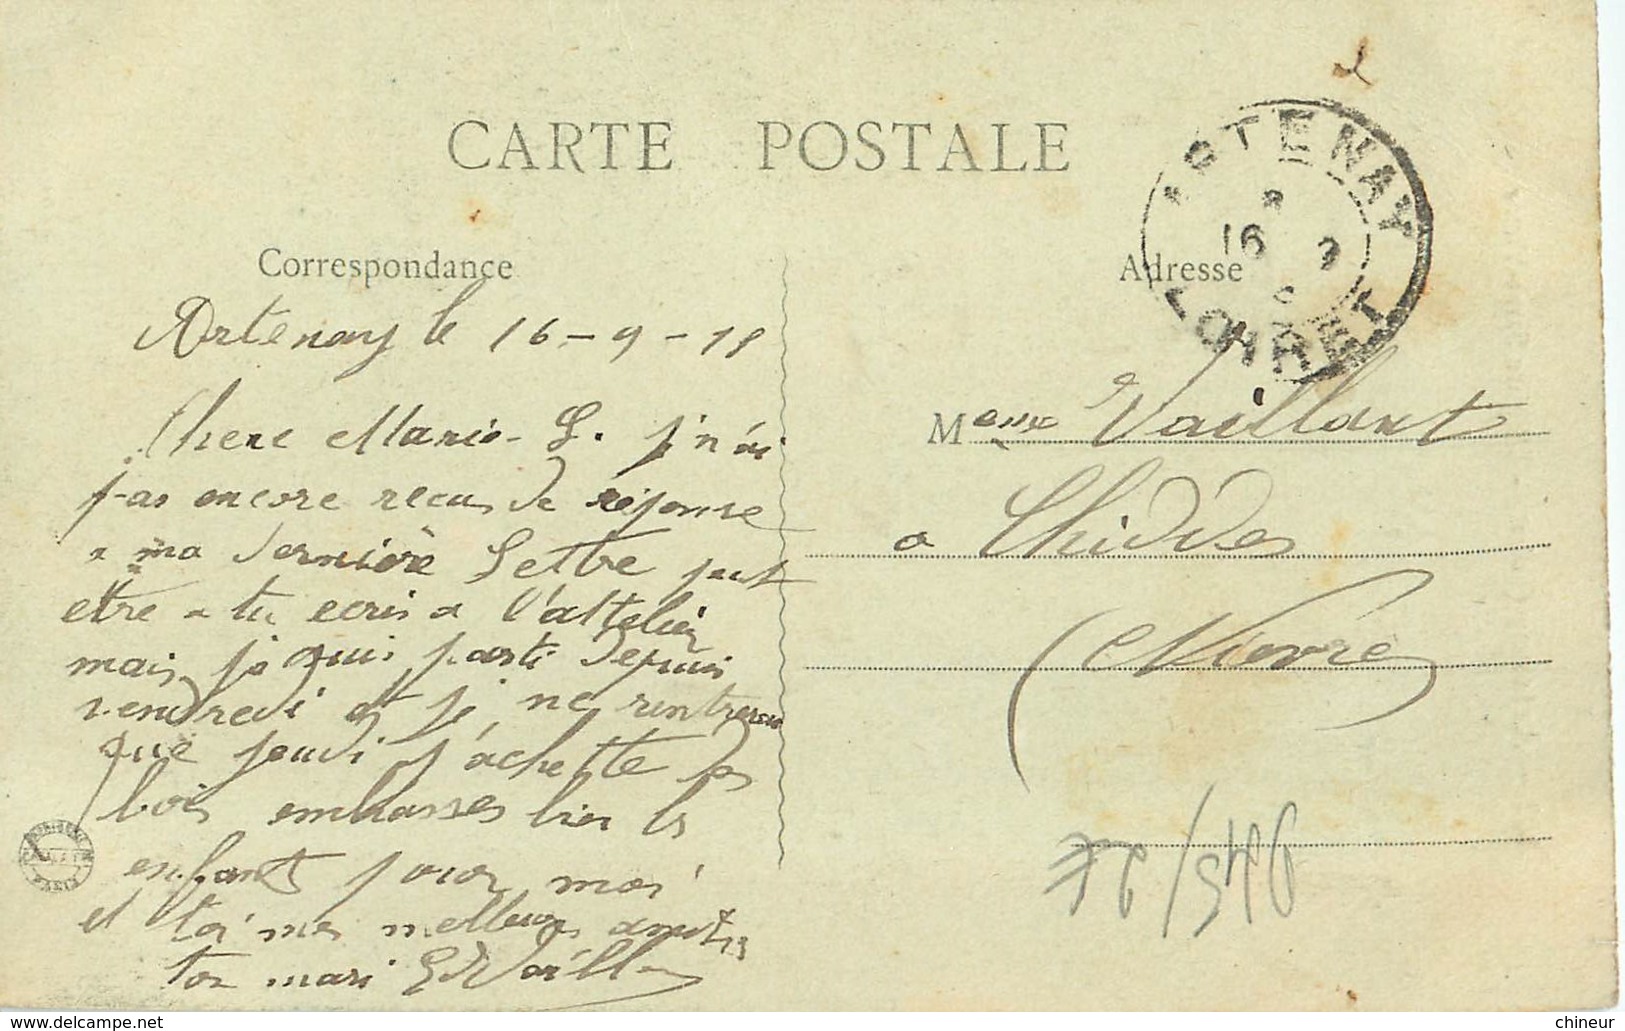 CARTE POSTALE
Correspondance
Artenay le 16-9-18
Chere Marie-L. j'n'ai
pas encore recus de réponse
a ma dernière Lettre peut
etre a tu ecris a l'attelier
mais je suis parti depuis
vendredi et je ne rentrerai
que jeudi j'achette des
bois embrasses bien les
enfants pour moi
et toi mes meilleurs amitiés
ton mari E Vaillant
ARTENAY
16 9
LOIRET
Adresse
Meme Vaillant
a Chiddes
(Nievre)
chineur